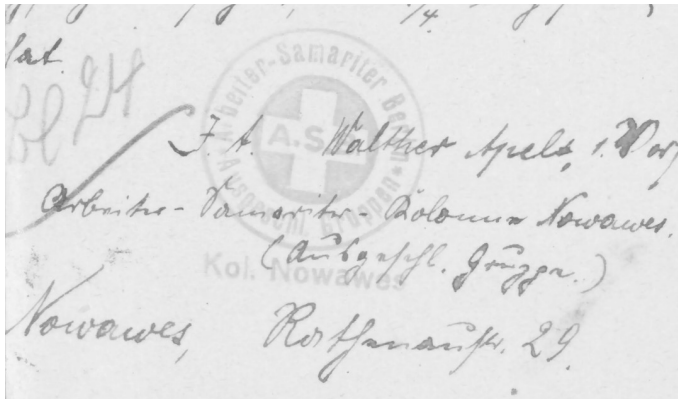 hat.
I. A. Walther Apelt, 1. Vors
Arbeiter-Samariter-Kolonne Nowawes.
(Ausgeschl. Gruppe.)
Nowawes, Rathenaustr. 29.
Arbeiter-Samariter Bund
Ausgeschl. Gruppen
A.S.
Kol. Nowawes